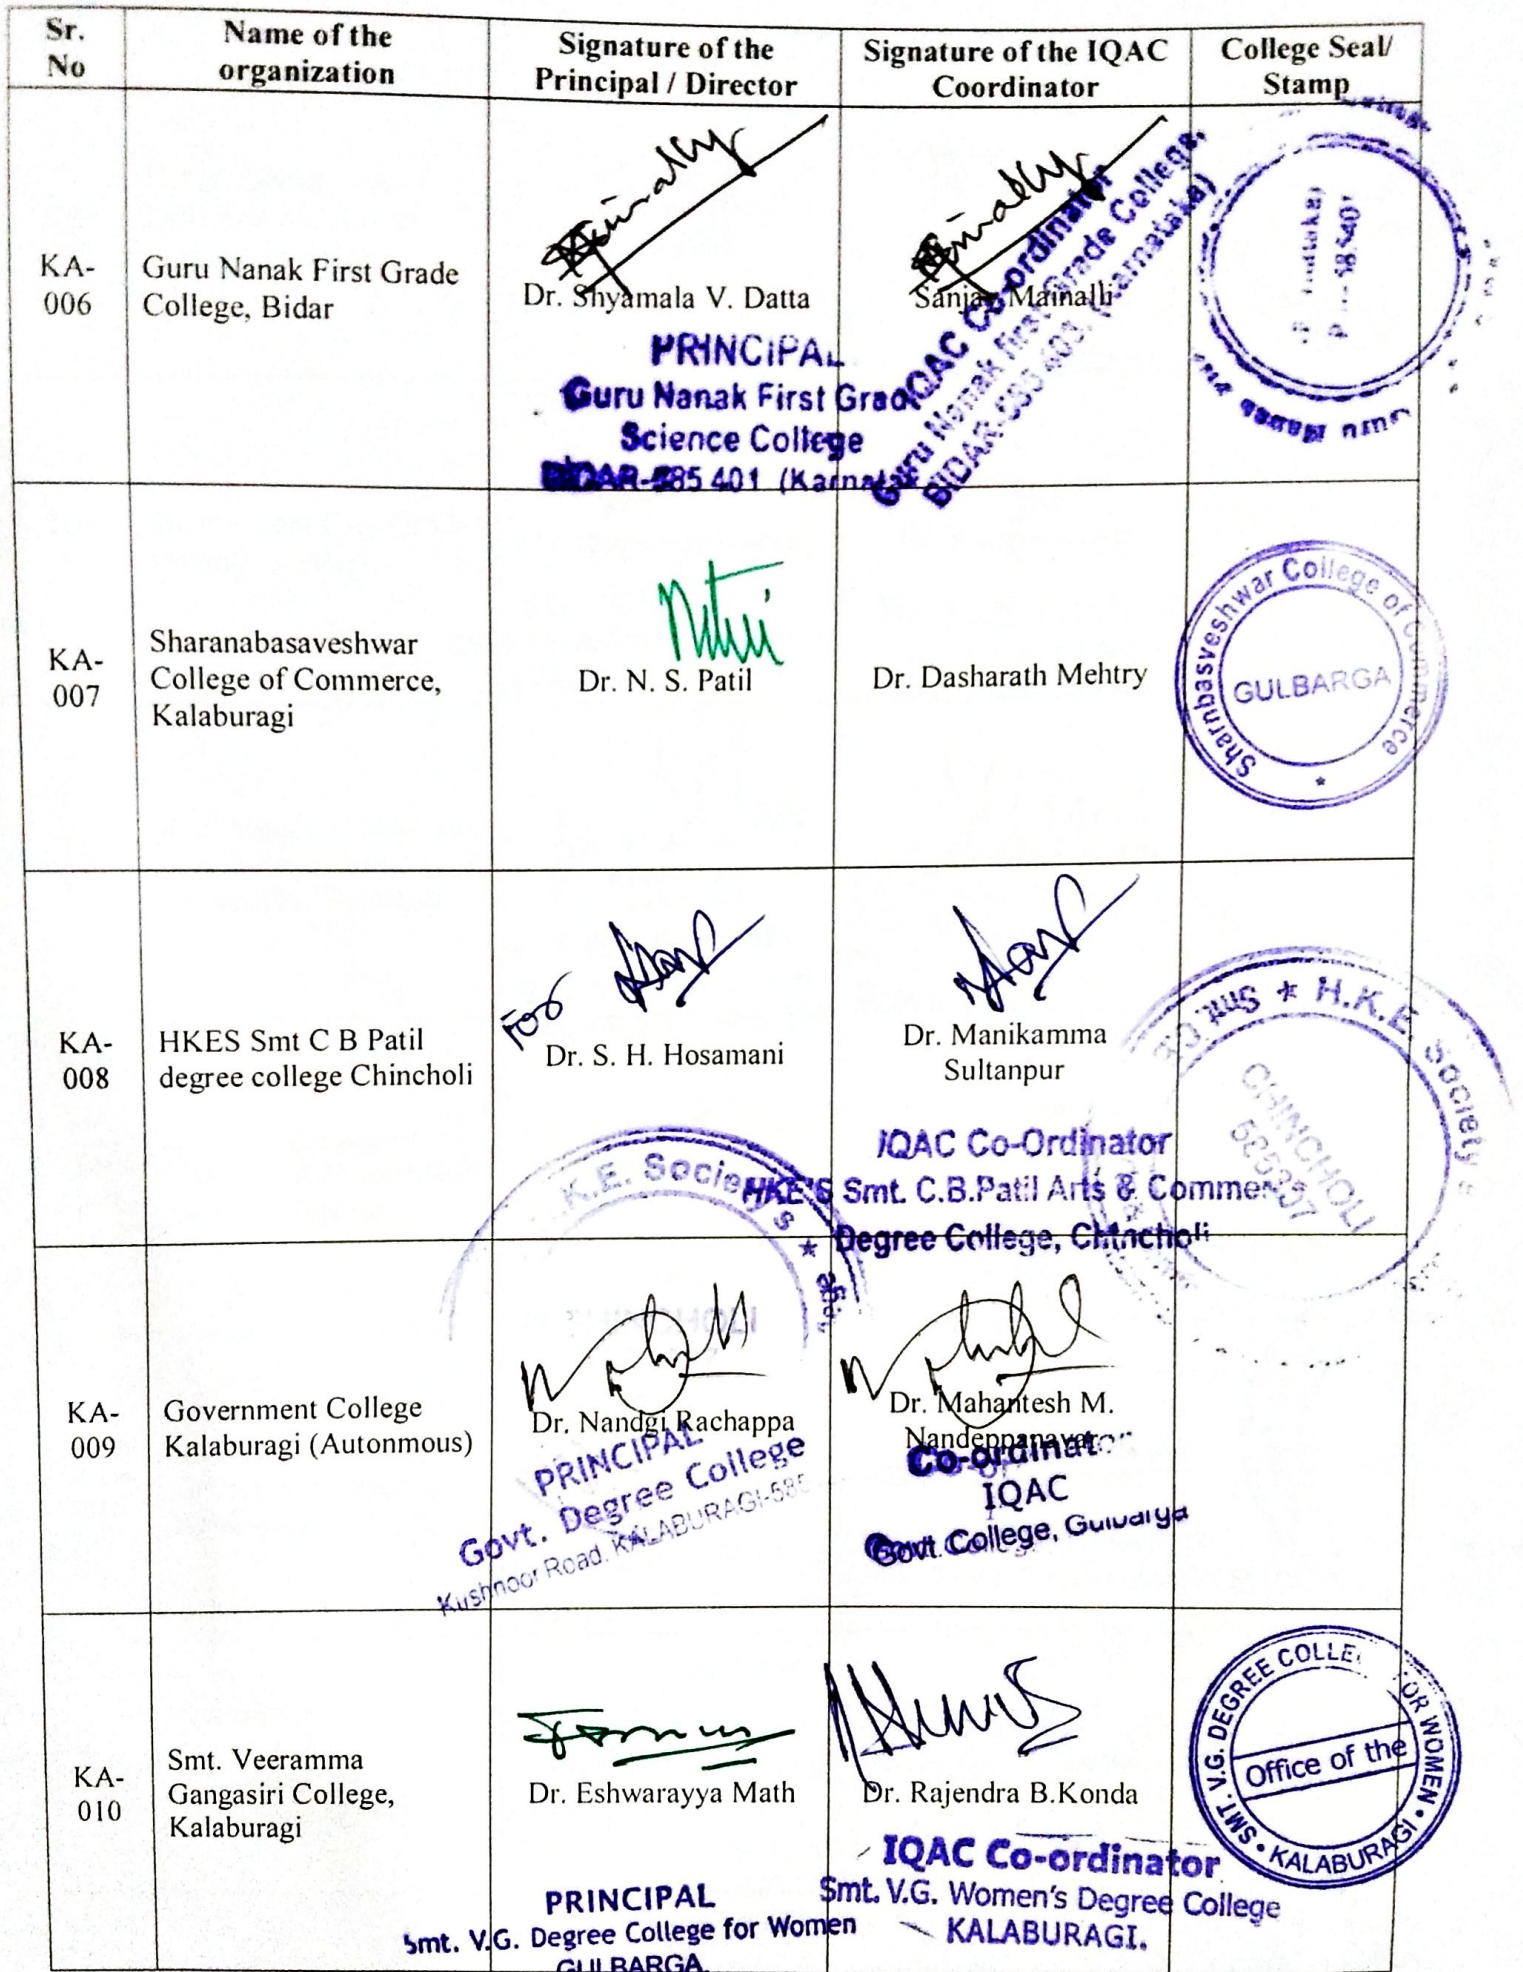 Sr. No
Name of the organization
Signature of the Principal / Director
Signature of the IQAC Coordinator
College Seal/ Stamp
KA-006
Guru Nanak First Grade
College, Bidar
Dr. Shyamala V. Datta
PRINCIPAL
Guru Nanak First Grad
Science College
BIDAR-585 401 (Karnatak
Sanjay Mainalli
IQAC Co-ordinator
Guru Nanak First Grade College,
BIDAR-585 403. (Karnataka)
KA-007
Sharanabasaveshwar
College of Commerce,
Kalaburagi
Dr. N. S. Patil
Dr. Dasharath Mehtry
Sharnbasveshwar College of Commerce
GULBARGA
KA-008
HKES Smt C B Patil
degree college Chincholi
For
Dr. S. H. Hosamani
K.E. Society's
Dr. Manikamma
Sultanpur
IQAC Co-Ordinator
HKE'S Smt. C.B.Patil Arts & Commerce
Degree College, Chincholi
H.K.E. Society's
Smt
CHINCHOLI
KA-009
Government College
Kalaburagi (Autonmous)
Dr. Nandgi Rachappa
PRINCIPAL
Govt. Degree College
Kushnoor Road, KALABURAGI-585
Dr. Mahantesh M.
Nandeppanavar
Co-ordinator
IQAC
Govt. College, Gulbarga
KA-010
Smt. Veeramma
Gangasiri College,
Kalaburagi
Dr. Eshwarayya Math
PRINCIPAL
Smt. V.G. Degree College for Women
GULBARGA.
Dr. Rajendra B.Konda
IQAC Co-ordinator
Smt. V.G. Women's Degree College
KALABURAGI.
SMT. V.G. DEGREE COLLEGE FOR WOMEN • KALABURAGI •
Office of the